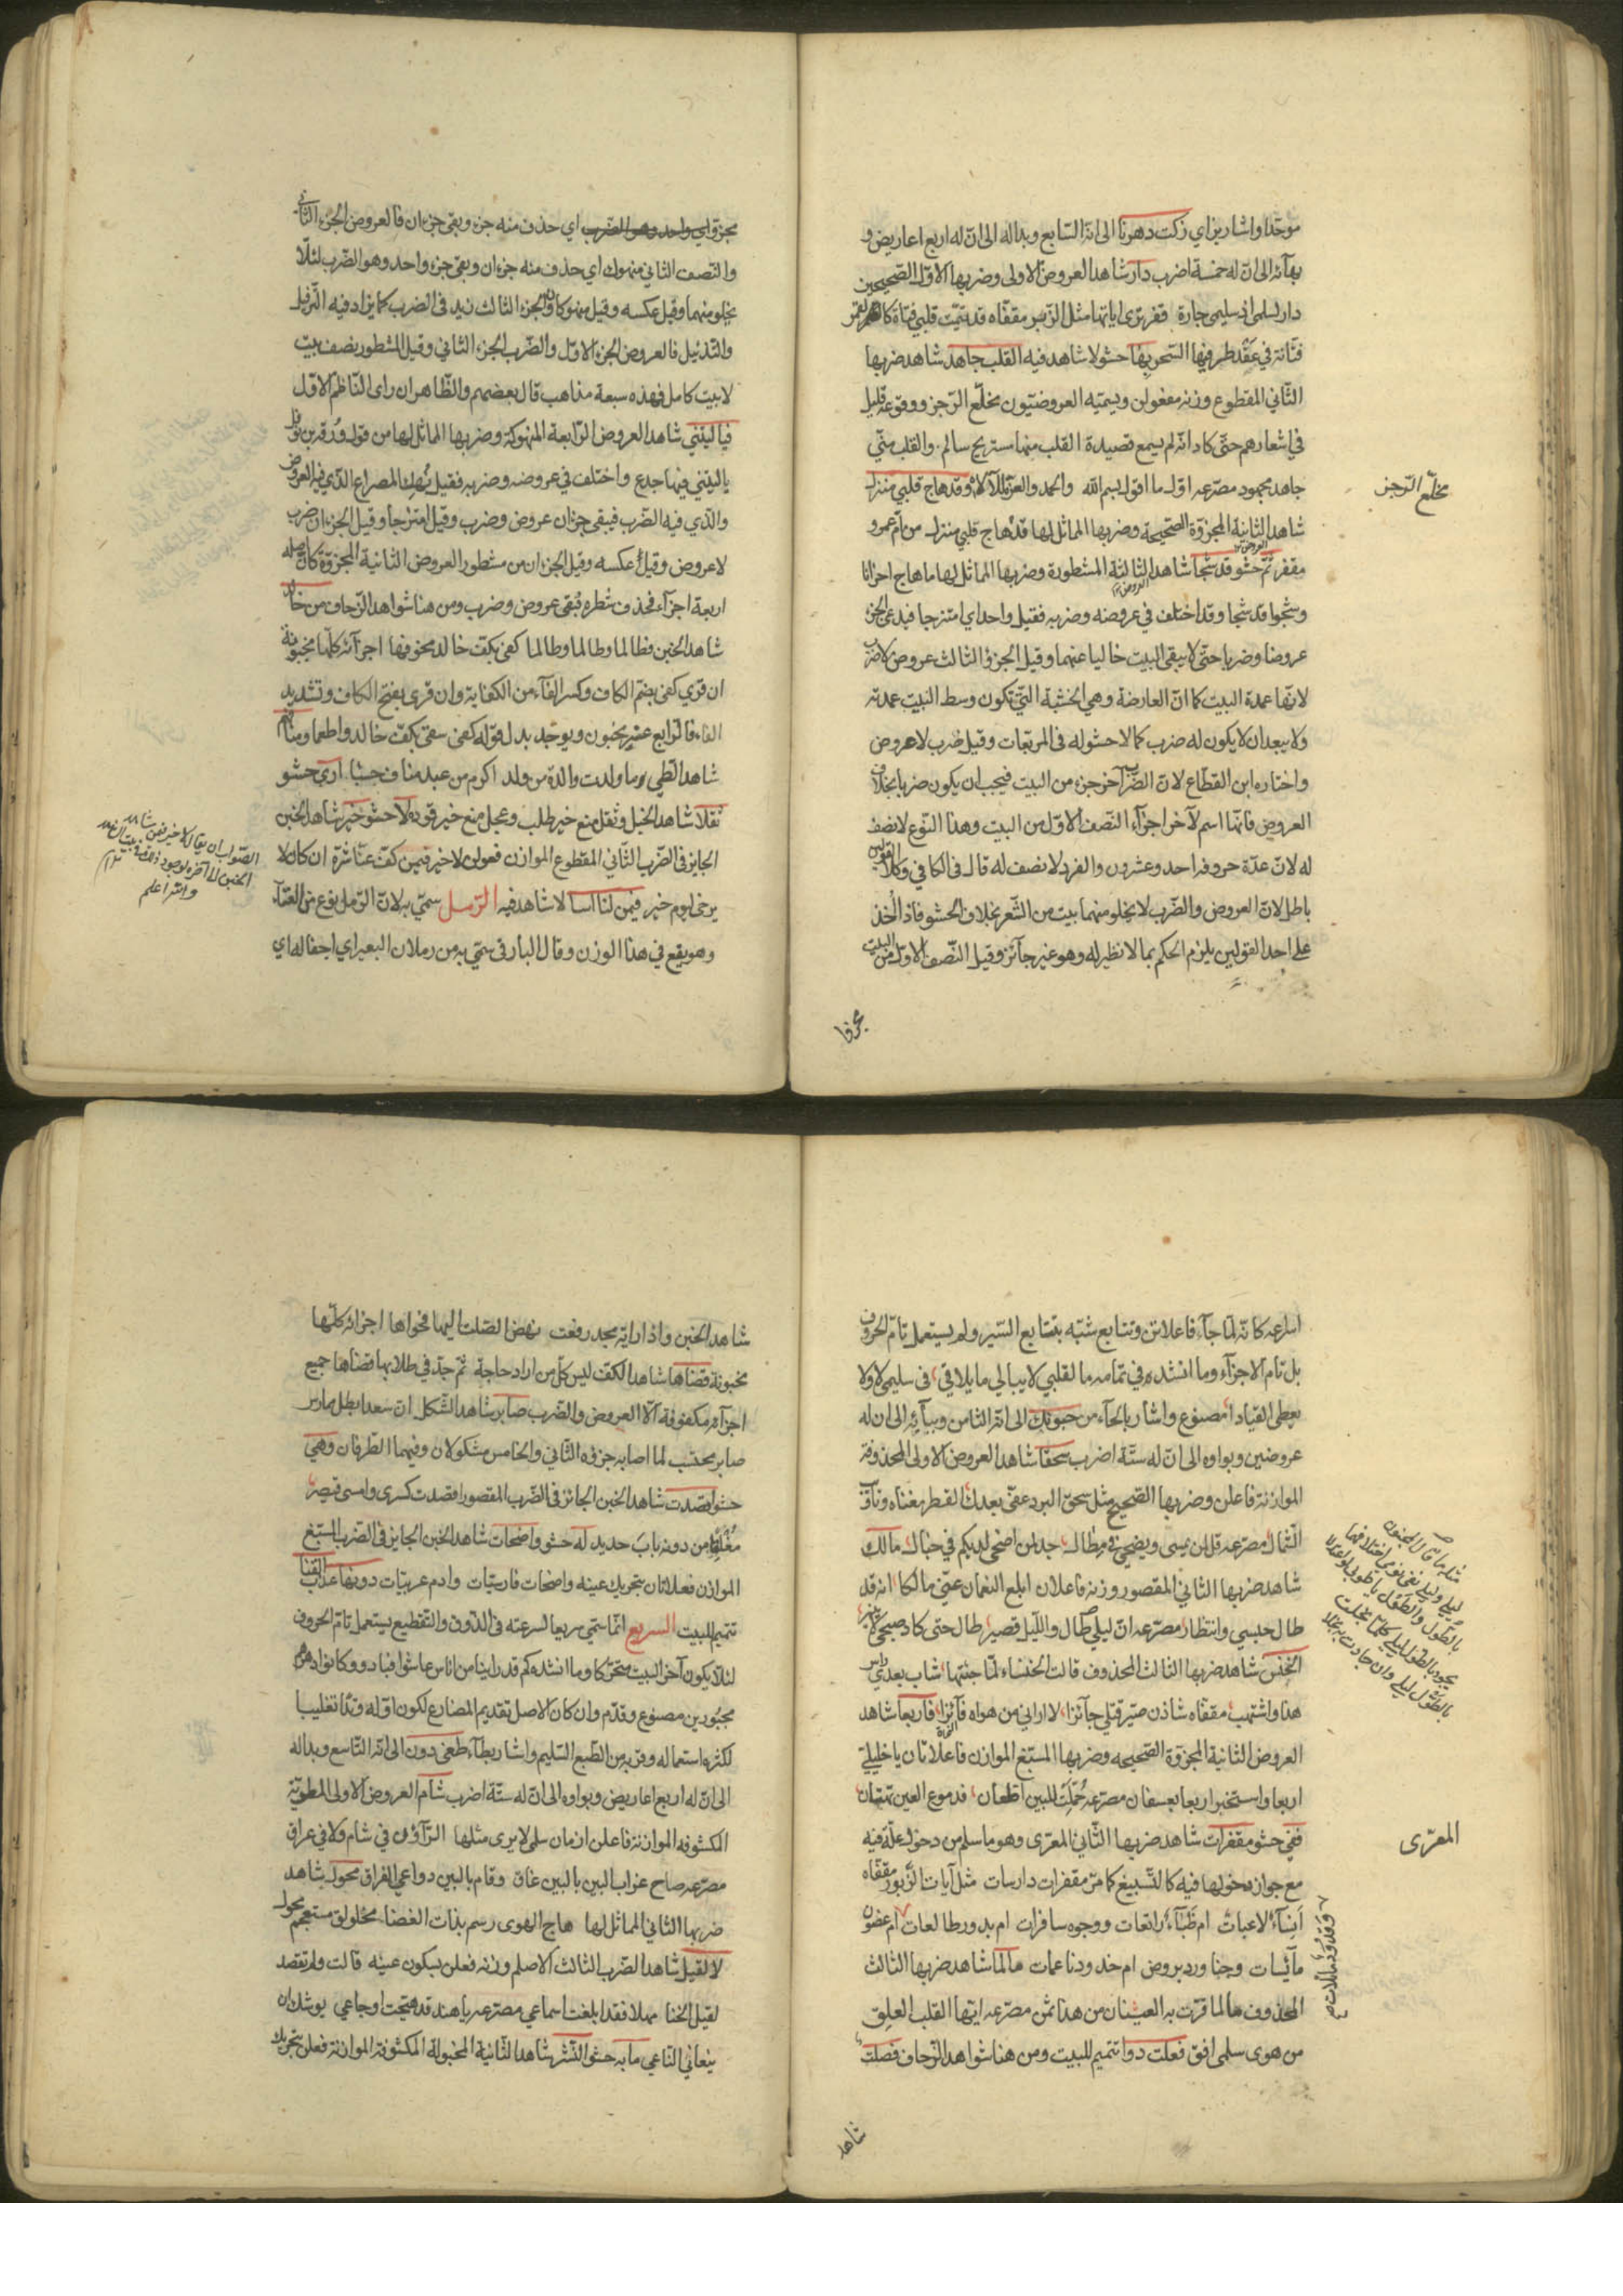 موحّدا واشار بزاي زكت دهرنا الى انه السابع وبداله الى ان له اربع اعاريض و
بهائه الى ان له خمسة اضرب دار شاهد العروض الاولى وضربها الاول الصحيحين
دار لسلمى اذ سليمى جارة قفر ترى اياتها مثل الزبر مقفاه قد تيمت قلبي فتاة
فتانة في عقد طرفيها السحر بها حشو لا شاهد فيه القلب جاهد شاهد ضربها
الثاني المقطوع وزنه مفعولن ويسميه العروضيون مخلّع الرجز ووقوعه قليل
في اشعارهم حتى كاد انه لم يسمع قصيدة القلب منها مستريح سالم والقلب منّي
جاهد مجهود مصرعه اول ما اقول بسم الله والحمد والعز وقد هاج قلبي منزل
شاهد الثانية المجزوة الصحيحة وضربها المماثل لها قد هاج قلبي منزل من ام عمرو
مقفر ثم حشو قد شجا شاهد الثالثة المشطورة وضربها المماثل لها ما هاج احزانا
وشجوا قد شجا وقد اختلف في عروضه وضربه فقيل واحد اي امتزجا فيدعى الجزء
عروضا وضربا حتى لا يبقى البيت خاليا عنهما وقيل الجزء الثالث عروض لا ضرب
لانها عمدة البيت كما ان العارضة وهي الخشبة التي تكون وسط البيت عمدته
ولا يبعد ان لا يكون له ضرب كما لا حشو له في المربعات وقيل ضرب لا عروض
واختاره ابن القطاع لان الضرب آخر جزء من البيت فيجب ان يكون ضربا بخلاف
العروض فانها اسم لآخر اجزاء النصف الاول من البيت وهذا النوع لا نصف
له لان عدة حروفه احد وعشرون والفرد لا نصف له قال في الكافي وكلا القولين
باطل لان العروض والضرب لا يخلو منهما بيت من الشعر بخلاف الحشو فاذ الخذ
على احد القولين يلزم الحكم بما لا نظير له وهو غير جائز وقيل النصف الاول من البيت
مخلّع الرجز
مجزوا
اي حذف منه جزء وبقي جزءان فالعروض الجزء الثاني
والنصف الثاني منهوك اي حذف منه جزءان وبقي جزء واحد وهو الضرب لئلا
يخلو منهما وقيل عكسه وقيل منهوكا والجزء الثالث زيد في الضرب كما يزاد فيه الترفيل
والتذييل فالعروض الجزء الاول والضرب الجزء الثاني وقيل المشطور نصف بيت
لا بيت كامل فهذه سبعة مذاهب قال بعضهم والظاهر ان راي الناظم الاول
فيا ليتني شاهد العروض الرابعة المنهوكة وضربها المماثل لها من قول ورقة بن نوفل
يا ليتني فيها جذع واختلف في عروضه وضربه فقيل نهك المصراع الذي فيه العروض
والذي فيه الضرب فبقي جزءان عروض وضرب وقيل امتزجا وقيل الجزءان ضرب
لا عروض وقيل عكسه وقيل الجزءان من مشطور العروض الثانية المجزوة كان اصله
اربعة اجزاء فحذف شطره فبقي عروض وضرب ومن هنا شواهد الزحاف من خالد
شاهد الخبن فطالما وطالما وطالما كفي بكف خالد مخوفها اجزائه كلها مخبونة
ان قرئ كفي بضم الكاف وكسر الفاء من الكفاية وان قرئ بفتح الكاف وتشديد
الفاء فالرابع غير مخبون ويوجد بدل قوله كفي سقى بكف خالد واطعما ومناف
شاهد الطي وما ولدت والدة من ولد اكرم من عبد مناف حسبا ارى حشو
ثقلا شاهد الخبل وثقل منع خير طلب وعجل منع خير تؤده لا حشو خير شاهد الخبن
الجايز في الضرب الثاني المقطوع الموازن فعولن لا خير فيمن كف عنا شره ان كان لا
يرجى ليوم خير فيمن لنا اسا لا شاهد فيه الرمل سمّي به لان الرمل نوع من الغناء
وهو يقع في هذا الوزن وقال البارقى سمي به من رملان البعير اي اجفاله اي
اسراعه كانه لما جاء فاعلاتن وتتابع شبه بتتابع السير ولم يستعمل تام الحروف
بل تام الاجزاء وما انشدوه في تمامه ما لقلبي لا يبالي ما يلاقي في سليمى لا ولا
يعطى القيادا مصنوع واشار بالحاء من حبوتك الى انه الثامن وببائه الى ان له
عروضين وبواوه الى ان له ستة اضرب سحقا شاهد العروض الاولى المحذوفة
الموازنة فاعلن وضربها الصحيح مثل سحق البرد عفى بعدك القطر مغناه وتأويب
الشمال مصرعه قل لمن يمسى ويضحى في مطال جد لمن اضحى لديكم في خبال مالك
شاهد ضربها الثاني المقصور وزنه فاعلان ابلغ النعمان عني مالكا انه قد
طال حبسي وانتظار مصرعه ان ليلي طال والليل قصير طال حتى كاد صبحي لا ينير
الخنس شاهد ضربها الثالث المحذوف قالت الخنساء لما جئتها شاب بعدي راس
هذا واشتهب مقفاه شاذن صير قتلي جائزا لا اراني من هواه فائزا فاربعا شاهد
العروض الثانية المجزوة الصحيحة وضربها المسبغ الموازن فاعلاتان يا خليلي
اربعا واستخبرا ربعا بعسفان مصرعه حملت للبين اظعان فدموع العين تهتان
ففي حشو مقفرات شاهد ضربها الثاني المعرّى وهو ما سلم من دخول علة فيه
مع جواز دخولها فيه كالتسبيغ كما مرّ مقفرات دارسات مثل آيات الزبور مقفاه
ام ظباء رائعات ووجوه سافرات ام بدور طالعات ام غصون
مائسات وجنا ورد بروض ام خدود ناعمات مالما شاهد ضربها الثالث
المحذوف مالما قرت به العينان من هذا ثمن مصرعه ايها القلب العلق
من هوى سلمى افق فعلت دوا تتميم للبيت ومن هنا شواهد الزحاف فصلت
المعرّى
شاهد
شاهد الخبن واذا راية مجد رفعت نهض الصلت اليها فحواها اجزائه كلها
مخبونة قضاها شاهد الكف ليس كل من اراد حاجة ثم جد في طلابها قضاها جميع
اجزائه مكفوفة الا العروض والضرب صابر شاهد الشكل ان سعدا بطل ممارس
صابر محتسب لما اصابه جزؤه الثاني والخامس مشكولان وفيهما الطرفان وهي
حشو اقصدت شاهد الخبن الجائز في الضرب المقصور اقصدت كسرى وامسى قيصر
مغلقا من دونه باب حديد له حشو واضحات شاهد الخبن الجايز في الضرب المسبغ
الموازن فعلاتان بتحريك عينه واضحات فارسيات وادم عربيات دونها عذاب القنا
تتميم للبيت السريع انما سمّي سريعا لسرعته في الذوق والتقطيع يستعمل تام الحروف
لئلا يكون آخر البيت متحركا وما انشدوه كم قد راينا من اناس عاشوا فبادوا وكانوا دهرهم
مجبورين مصنوع وقدم وان كان الاصل تقديم المضارع لكون اوله وتدا تغليبا
لكثرة استعماله وقربه من الطبع السليم واشار بطاء طغى دون الى انه التاسع وبداله
الى ان له اربع اعاريض وبواوه الى ان له ستة اضرب شام العروض الاولى المطوية
المكشوفة الموازنة فاعلن ازمان سلمى لا يرى مثلها الراؤن في شام ولا في عراق
مصرعه صاح غراب البين بالبين غاق وقام بالبين دواعي الفراق محول شاهد
ضربها الثاني المماثل لها هاج الهوى رسم بذات الغضا مخلولق مستعجم محول
لا لقيل شاهد الضرب الثالث الاصلم وزنه فعلن بسكون عينه قالت ولم تقصد
لقيل الخنا مهلا فقد ابلغت اسماعي مصرعه يا هند قد هيجت اوجاعي يوشك ان
ينعاني الناعي ما به حشو النشر شاهد الثانية المخبولة المكشوفة الموازنة فعلن بتحريك